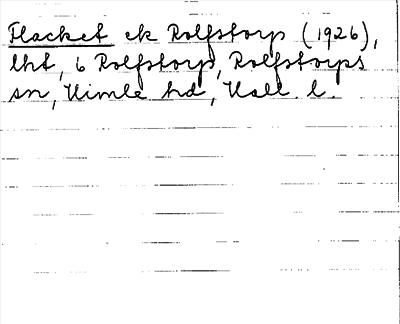 Flacket ek Rolfstorp (1926),
lht, 6 Rolfstorp, Rolfstorps
sn, Himle hd, Hall. l.